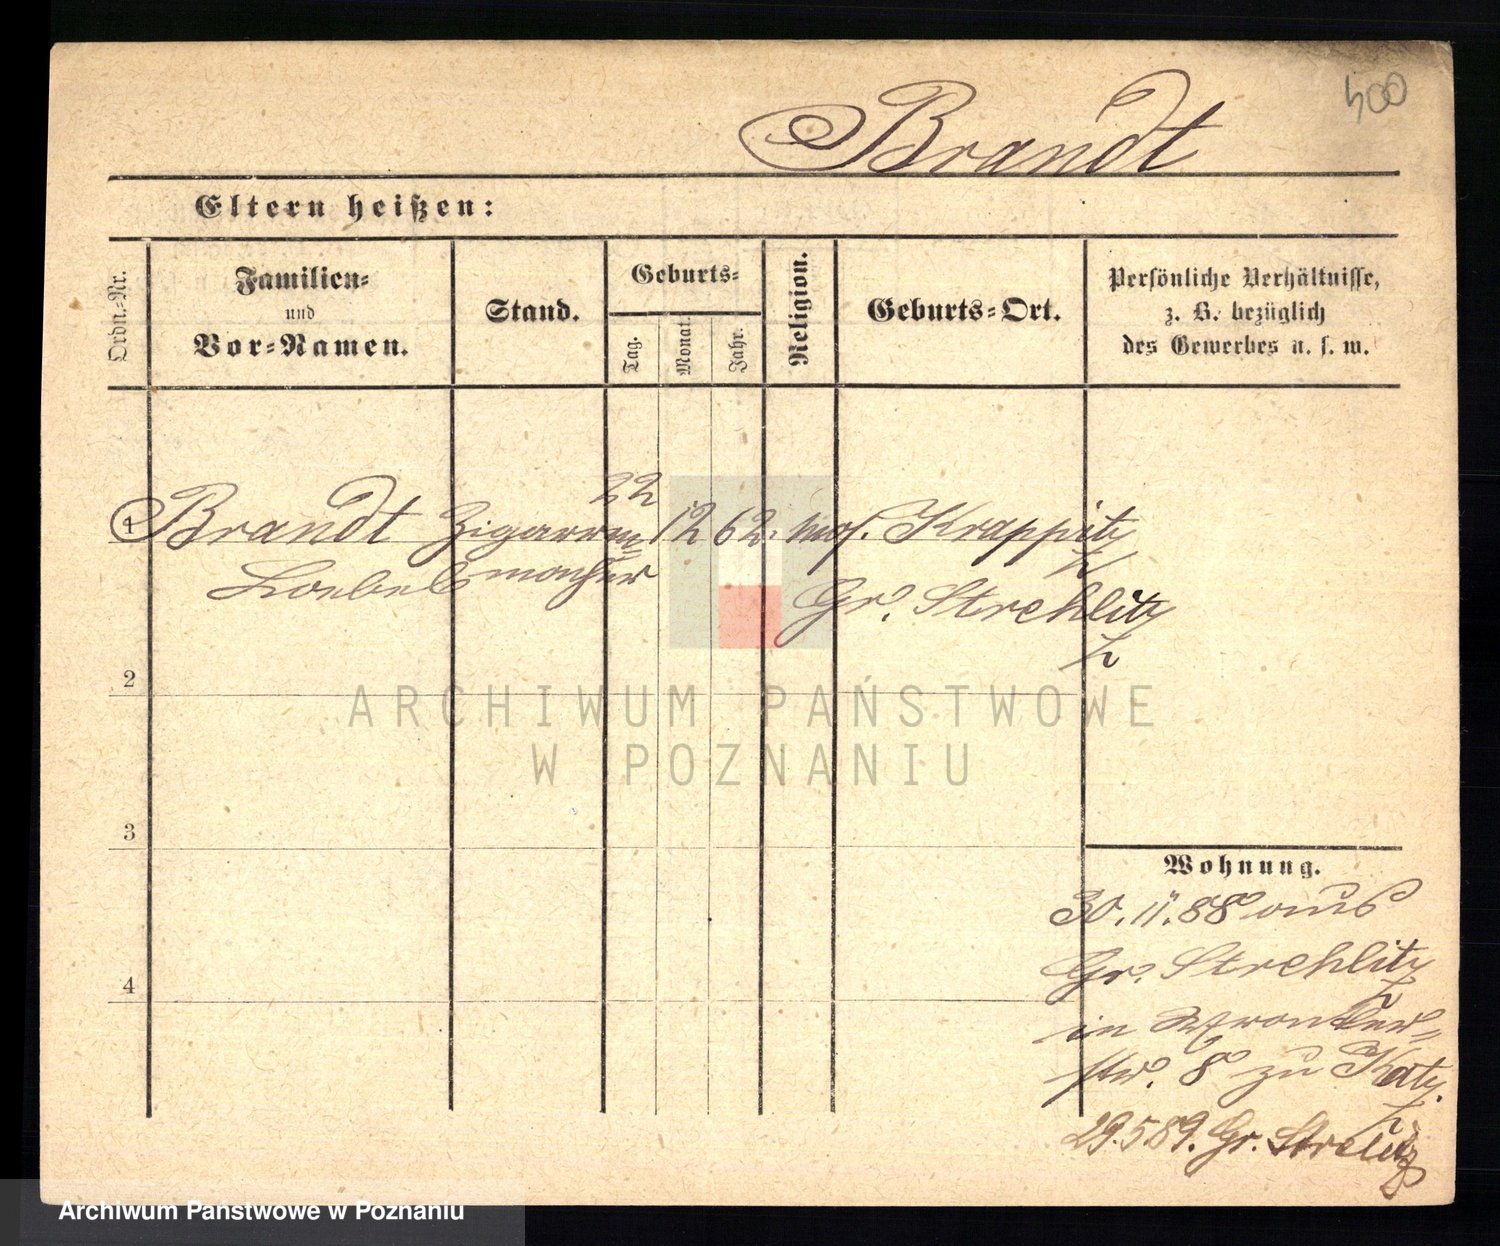 500
Brandt
Eltern heißen:
Ordn.-Nr.
Familien-
und
Vor-Namen.
Stand.
Geburts-
Tag.
Monat.
Jahr.
Religion.
Geburts-Ort.
Persönliche Verhältnisse,
z. B. bezüglich
des Gewerbes u. s. w.
1 Brandt Zigarren- 22 12 62. mos. Krappitz
Loebel macher Gr. Strehlitz
2
3
4
Wohnung.
30.11.88 aus
Gr. Strehlitz
in Wronker-
str. 8 zu Katz.
29.5.89. Gr. Strelitz
ARCHIWUM PAŃSTWOWE
W POZNANIU
Archiwum Państwowe w Poznaniu